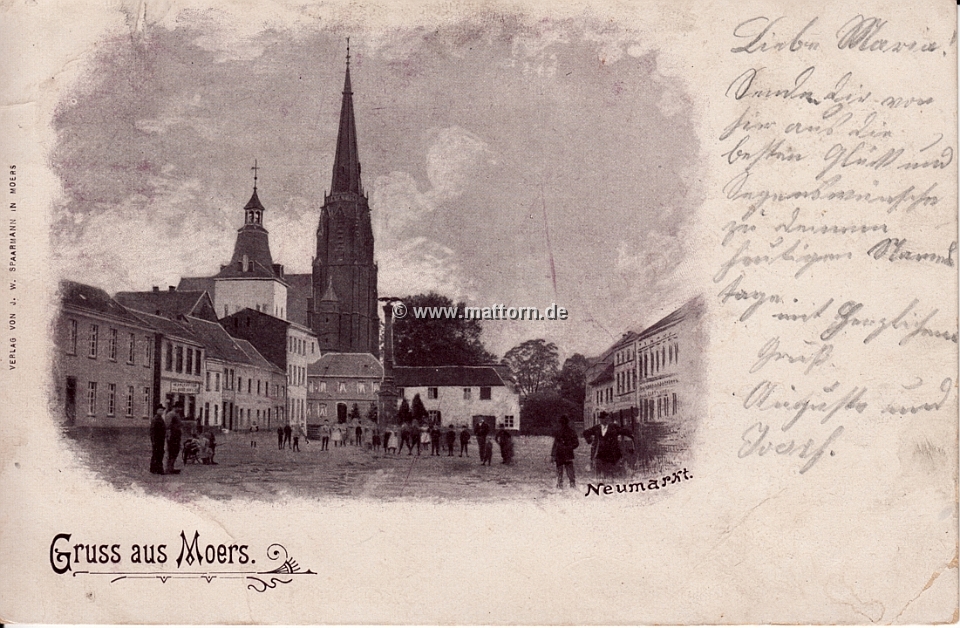 Liebe Maria!
Sende Dir von
hier aus die
besten Glück und
Segenswünsche
zu deinem
heutigen Namens
tage. mit Herzlichem
Gruß.
Auguste und
VERLAG VON J. W. SPAARMANN IN MOERS
© www.mattorn.de
Neumarkt.
Gruss aus Moers.